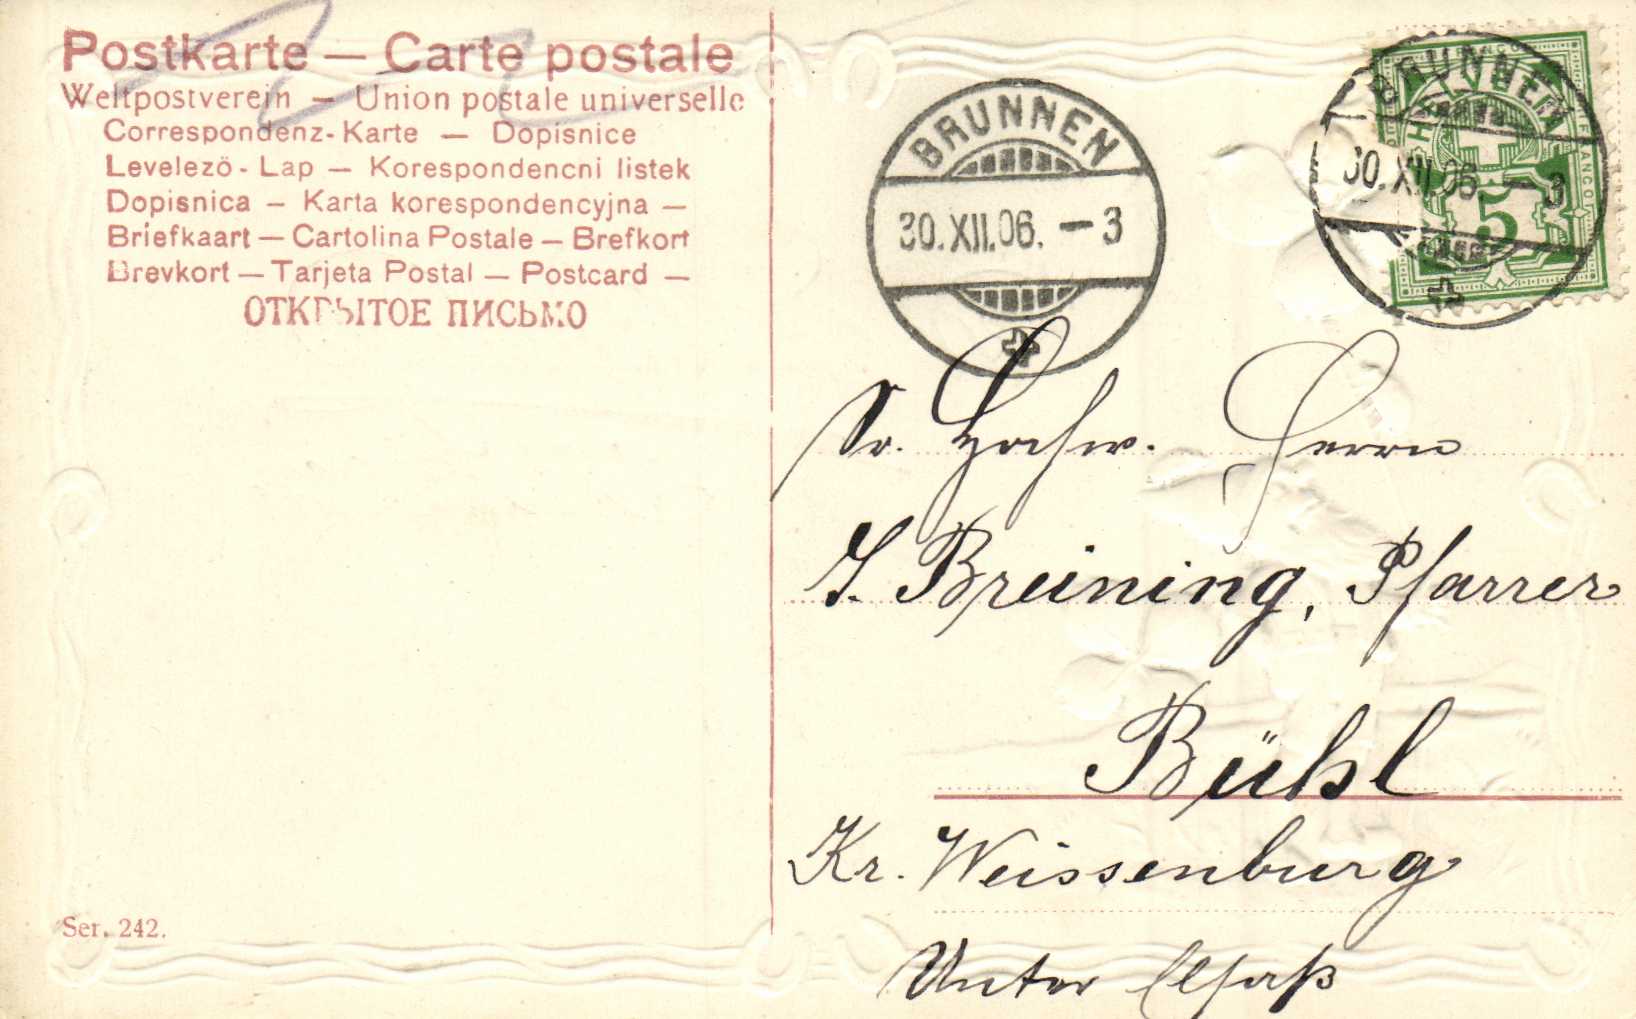 Postkarte — Carte postale
Weltpostverein — Union postale universelle
Correspondenz-Karte — Dopisnice
Levelező - Lap — Korespondencni listek
Dopisnica — Karta korespondencyjna —
Briefkaart — Cartolina Postale — Brefkort
Brevkort — Tarjeta Postal — Postcard —
ОТКРЫТОЕ ПИСЬМО
BRUNNEN
30.XII.06. — 3
BRUNNEN
30.XII.06. — 3
FRANCO
5
Sr. Hochw. Herrn
J. Breining, Pfarrer
Bühl
Kr. Weissenburg
Unter Elsaß
Ser. 242.